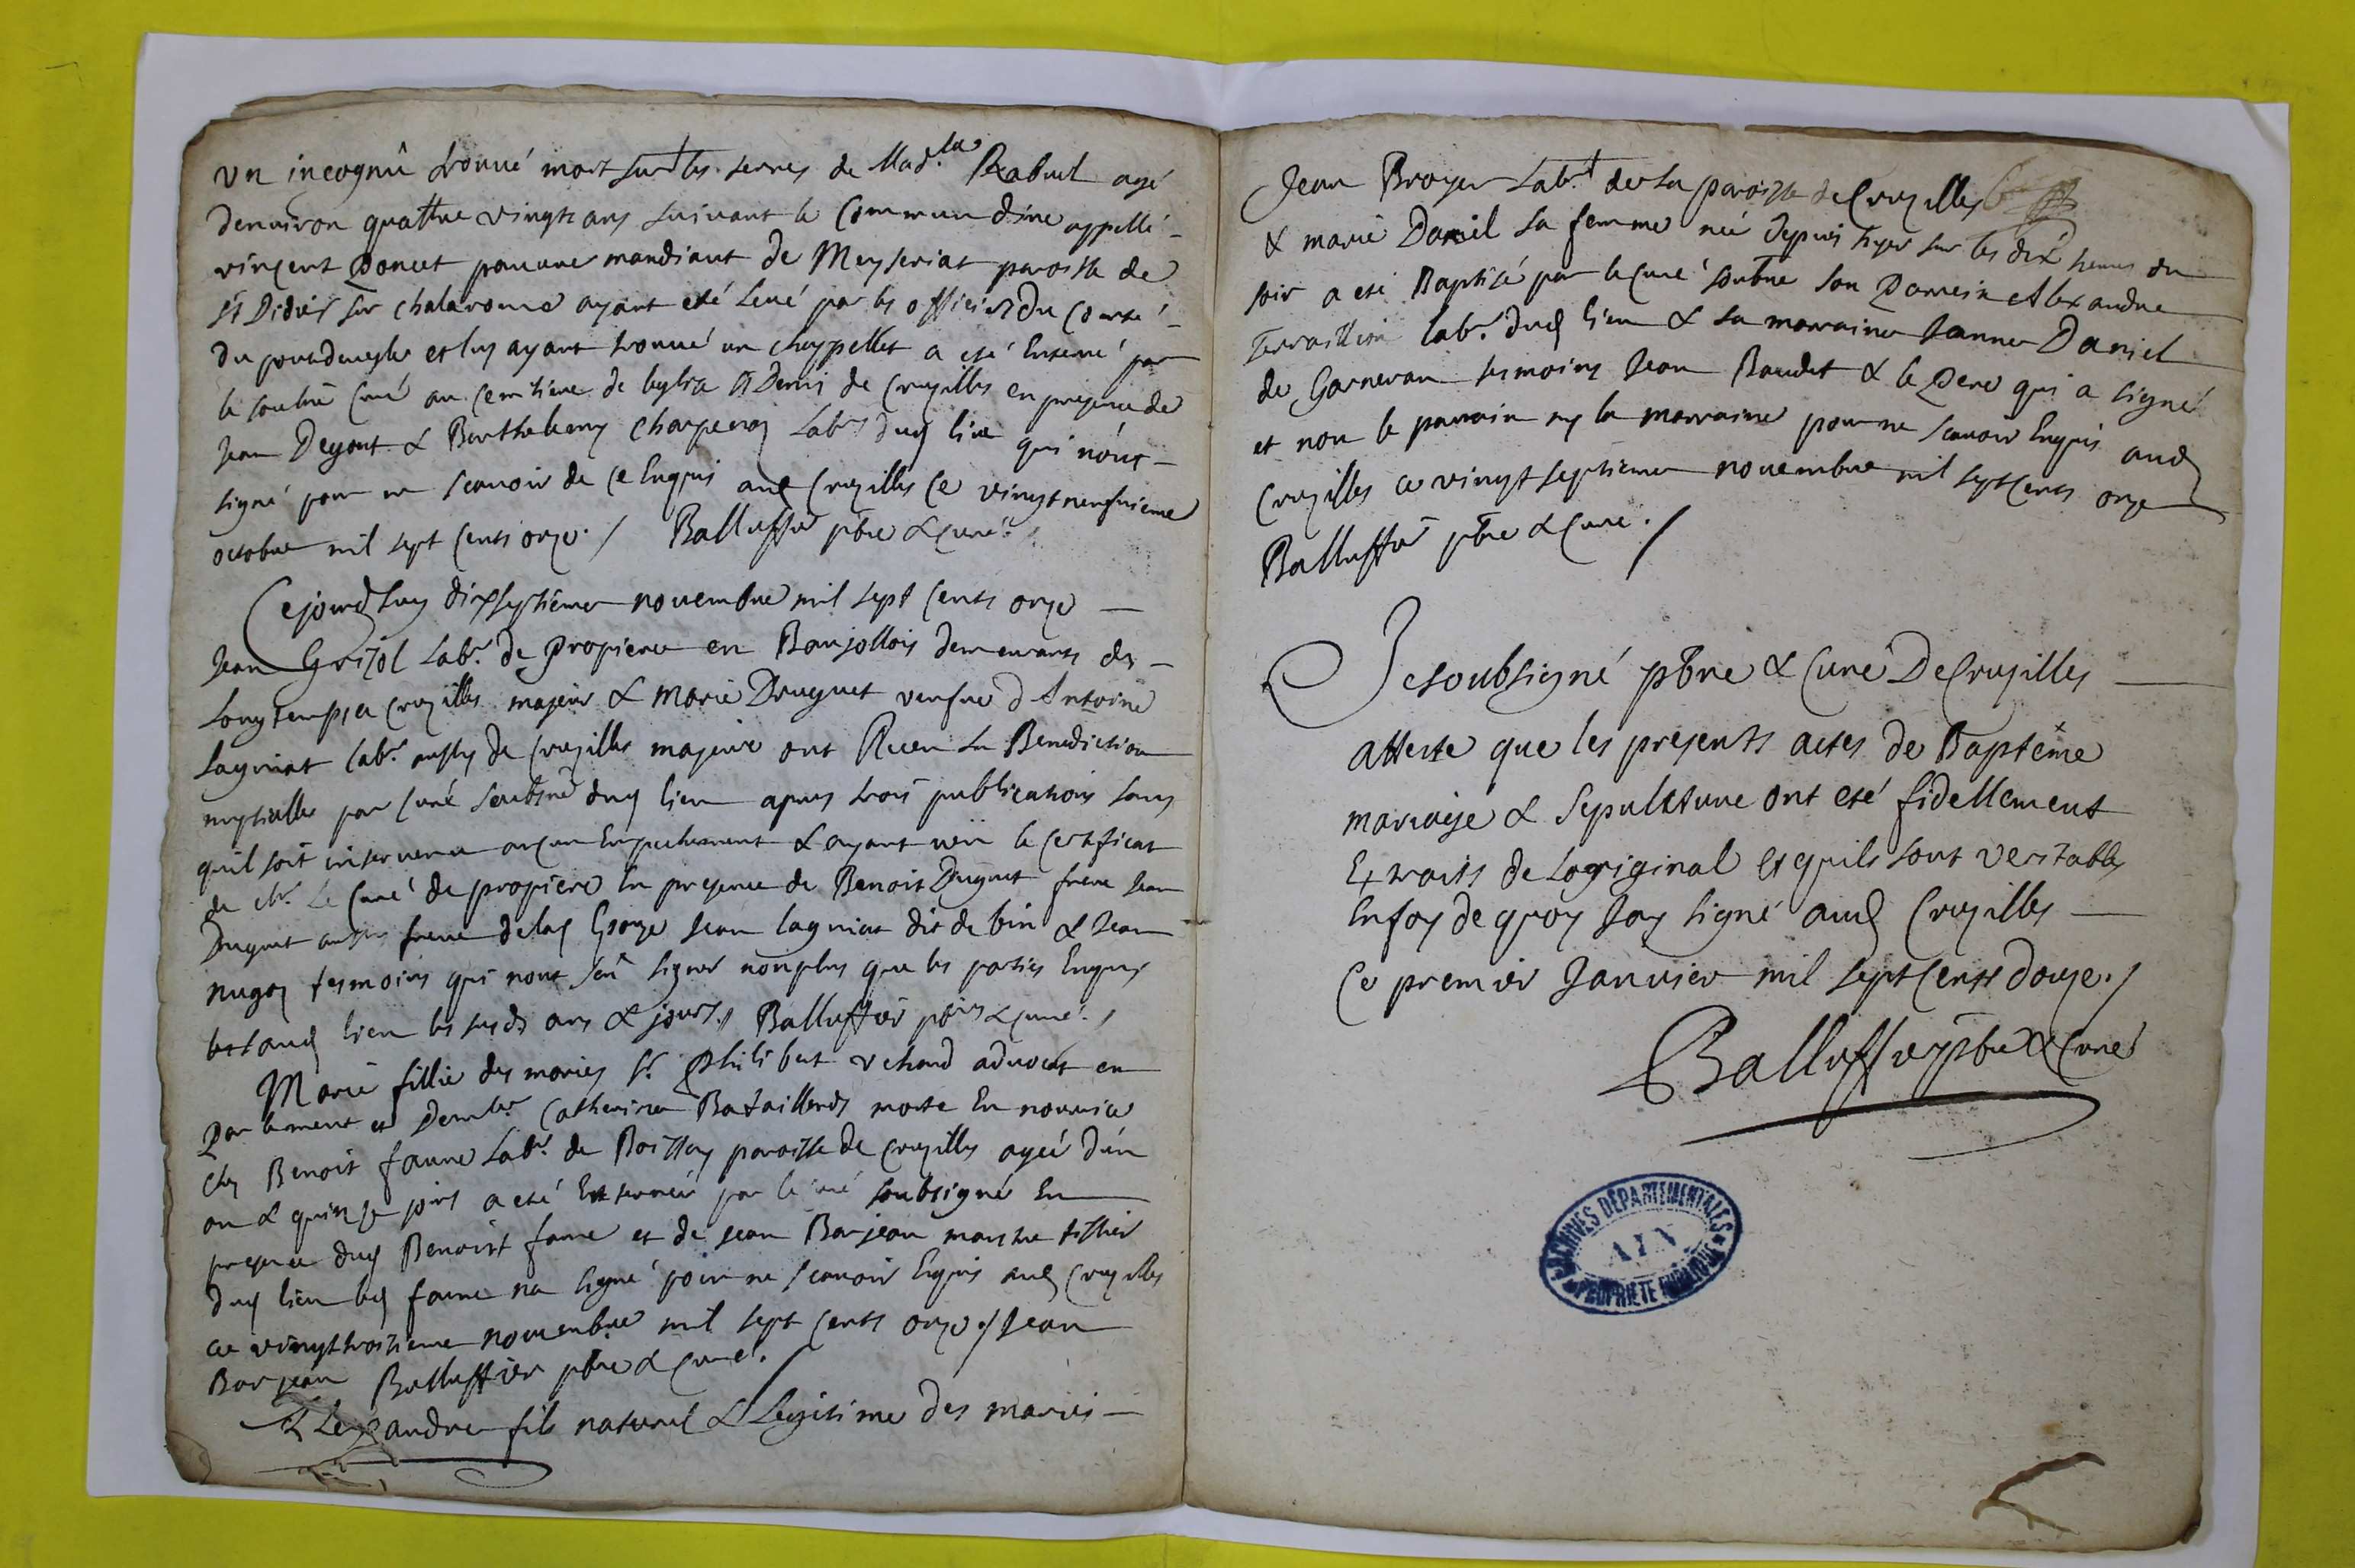 un incognû trouvé mort sur les terres de Mad.lle Rabuel agé
denviron quattre vingts ans suivant le commun dire appellé
vincent Poncet pauvre mandiant de Meyseriat paroisse de
St Didier sur chalaronne ayant eté levé par les officiers du Comté
du pontdeveyle et luy ayant trouvé un chappellet a eté Enterré par
le soubnè Curé au cemitiere de leglise St Denis de Cruzilles en presence de
Jean Degout & Barthelemy Charpenay Labrs dud lieu qui nont
signé pour ne scavoir de ce Enquis aud Cruzilles ce vingtneufvieme
octobre mil sept cents onze ./ Balluffier pbre & Curé
Cejourdhuy dixseptième novembre mil sept cents onze
Jean Grizol Labr. de Propiere en Baujollois demeurants des
Longtemps a Cruzilles majeur & Marie Druguet veufve d Antoine
Lagniat labr. aussy de Cruzilles majeure ont Receu La Benediction
nuptialle par Curé soubsné dud lieu apres trois publications sans
quil soit intervenu aucun Empechement & ayant veu le Certificat
de Mr. Le Curé de propiere En presence de Benoit Duguet frere Jean
Duguet aussy frere de lad George Jean lagniat dit de bin & Jean
nugoz tesmoins qui nont sçû signer nonplus que les parties Enquis
et aud lieu les susds ans & jours./ Balluffier pbre & curé./
Marie fillie des mariés Sr. Philibert vchard advocat en
Parlement et Demlle Catherine Bataillard morte En nourrice
Chez Benoit faure Labr. de Boissey paroisse de Cruzilles agée dun
an & quinze jours a eté Enterrée par le curé soubsigné En
presence dud Benoist faure et de Jean Barjean maistre tissier
dud lieu led faure na signé pour ne scavoir Enquis aud Cruzilles
ce vingttroisieme novembre mil sept cents onze ./ Jean
Barjean Balluffier pbre & curé.
Alexandre fils naturel & Legitime des mariés
Jean Broyer Labrt de la paroisse de Cruzilles
& marie Daniel sa femme né depuis hyer sur les dix heures du
soir a eté Baptisé par le curé soubné son Parrein Alexandre
Terraillon labr. dud lieu & sa marraine Jeanne Daniel
de Garneran tesmoins Jean Baudet & le Pere qui a signé
et non le parrain ny la marraine pour ne scavoir Enquis aud
Cruzilles ce vingt septieme novembre mil sept cents onze
Balluffier pbre & Curé ./
Je soubsigné pbre & Curé De Cruzilles
atteste que les presents actes de Baptême
mariage & sepulcture ont eté fidellement
Extraits de Loriginal et quils sont veritables
Enfoy de quoy Jay signé aud Cruzilles
Ce premier Janvier mil sept cents douze ./
Balluffier pbre & Curé
ARCHIVES DÉPARTEMENTALES
AIN
PROPRIÉTÉ PUBLIQUE